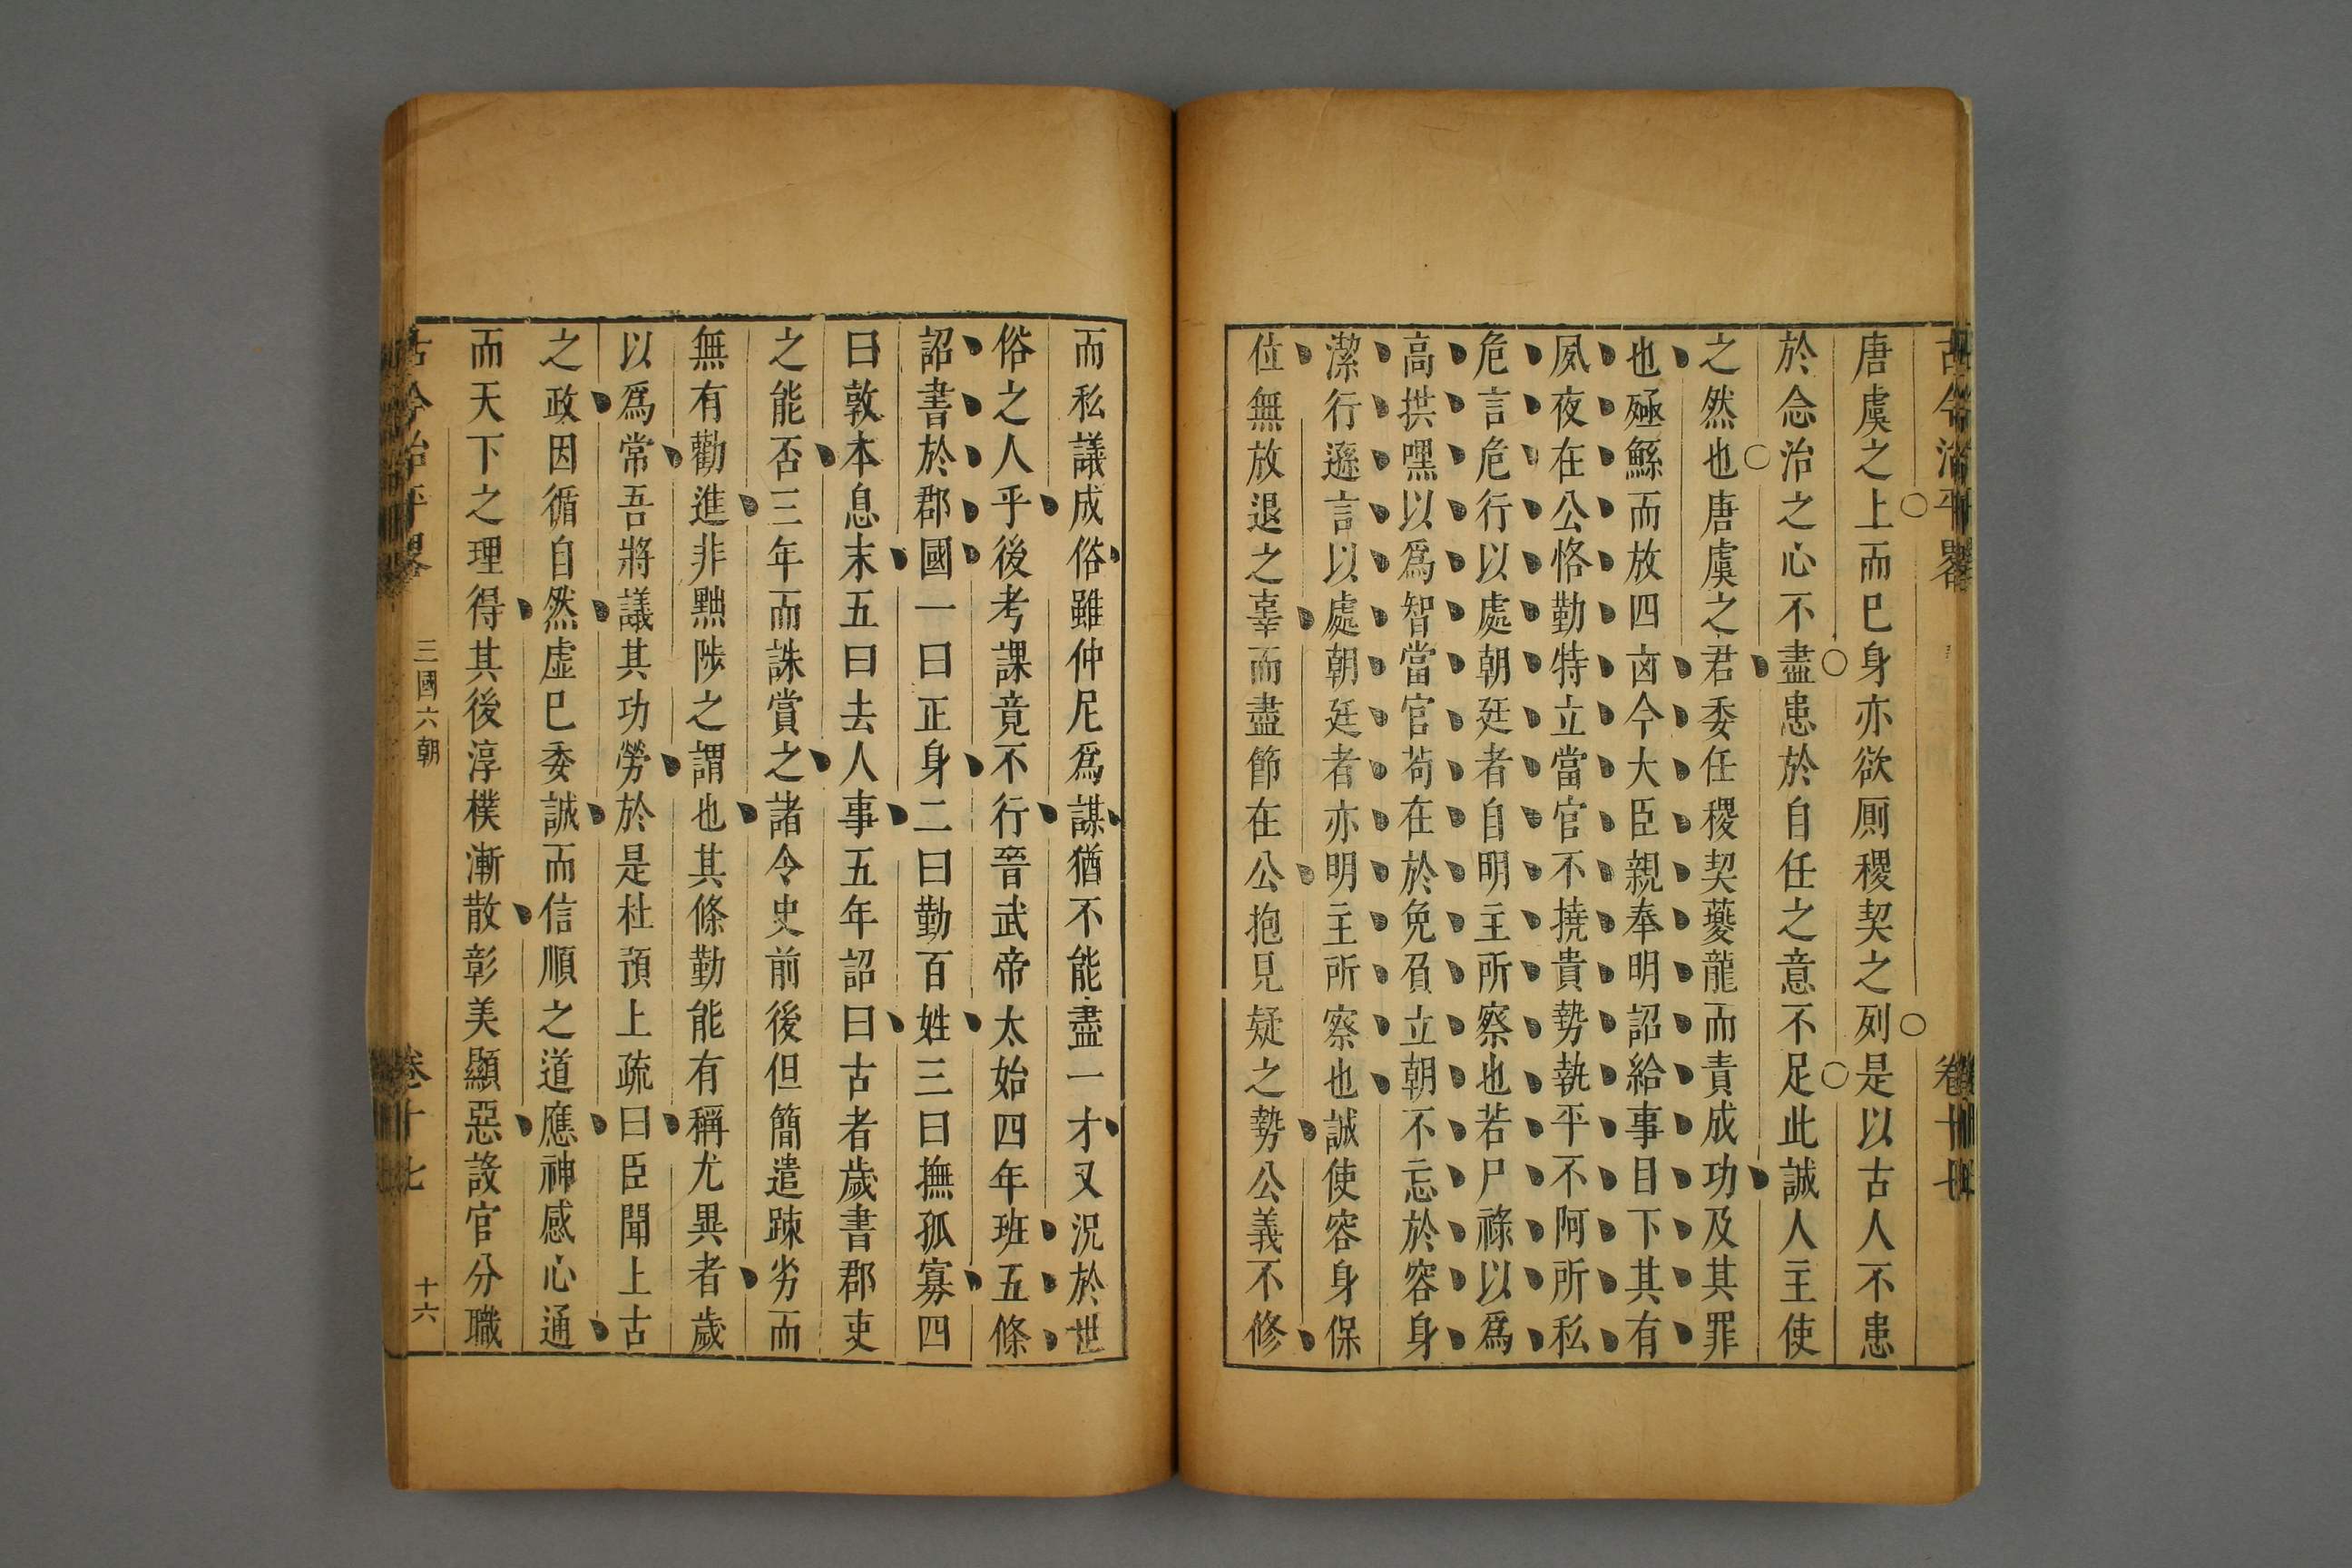 古今治平畧
卷十七
唐虞之上而已身亦欲厠稷契之列是以古人不患
於念治之心不盡患於自任之意不足此誠人主使
之然也唐虞之君委任稷契夔龍而責成功及其罪
也殛鯀而放四凶今大臣親奉明詔給事目下其有
夙夜在公恪勤特立當官不撓貴勢執平不阿所私
危言危行以處朝廷者自明主所察也若尸祿以爲
高拱嘿以爲智當官苟在於免負立朝不忘於容身
潔行遜言以處朝廷者亦明主所察也誠使容身保
位無放退之辜而盡節在公抱見疑之勢公義不修
而私議成俗雖仲尼爲謀猶不能盡一才又況於世
俗之人乎後考課竟不行晉武帝太始四年班五條
詔書於郡國一曰正身二曰勤百姓三曰撫孤寡四
曰敦本息末五曰去人事五年詔曰古者歲書郡吏
之能否三年而誅賞之諸令史前後但簡遣疎劣而
無有勸進非黜陟之謂也其條勤能有稱尤異者歲
以爲常吾將議其功勞於是杜預上疏曰臣聞上古
之政因循自然虛已委誠而信順之道應神感心通
而天下之理得其後淳樸漸散彰美顯惡設官分職
古今治平畧
三國六朝
卷十七
十六